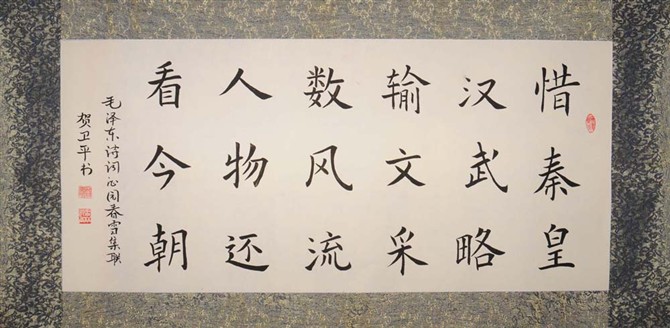 惜秦皇
汉武略
输文采
数风流
人物还
看今朝
毛泽东诗词沁园春雪集联
贺卫平书